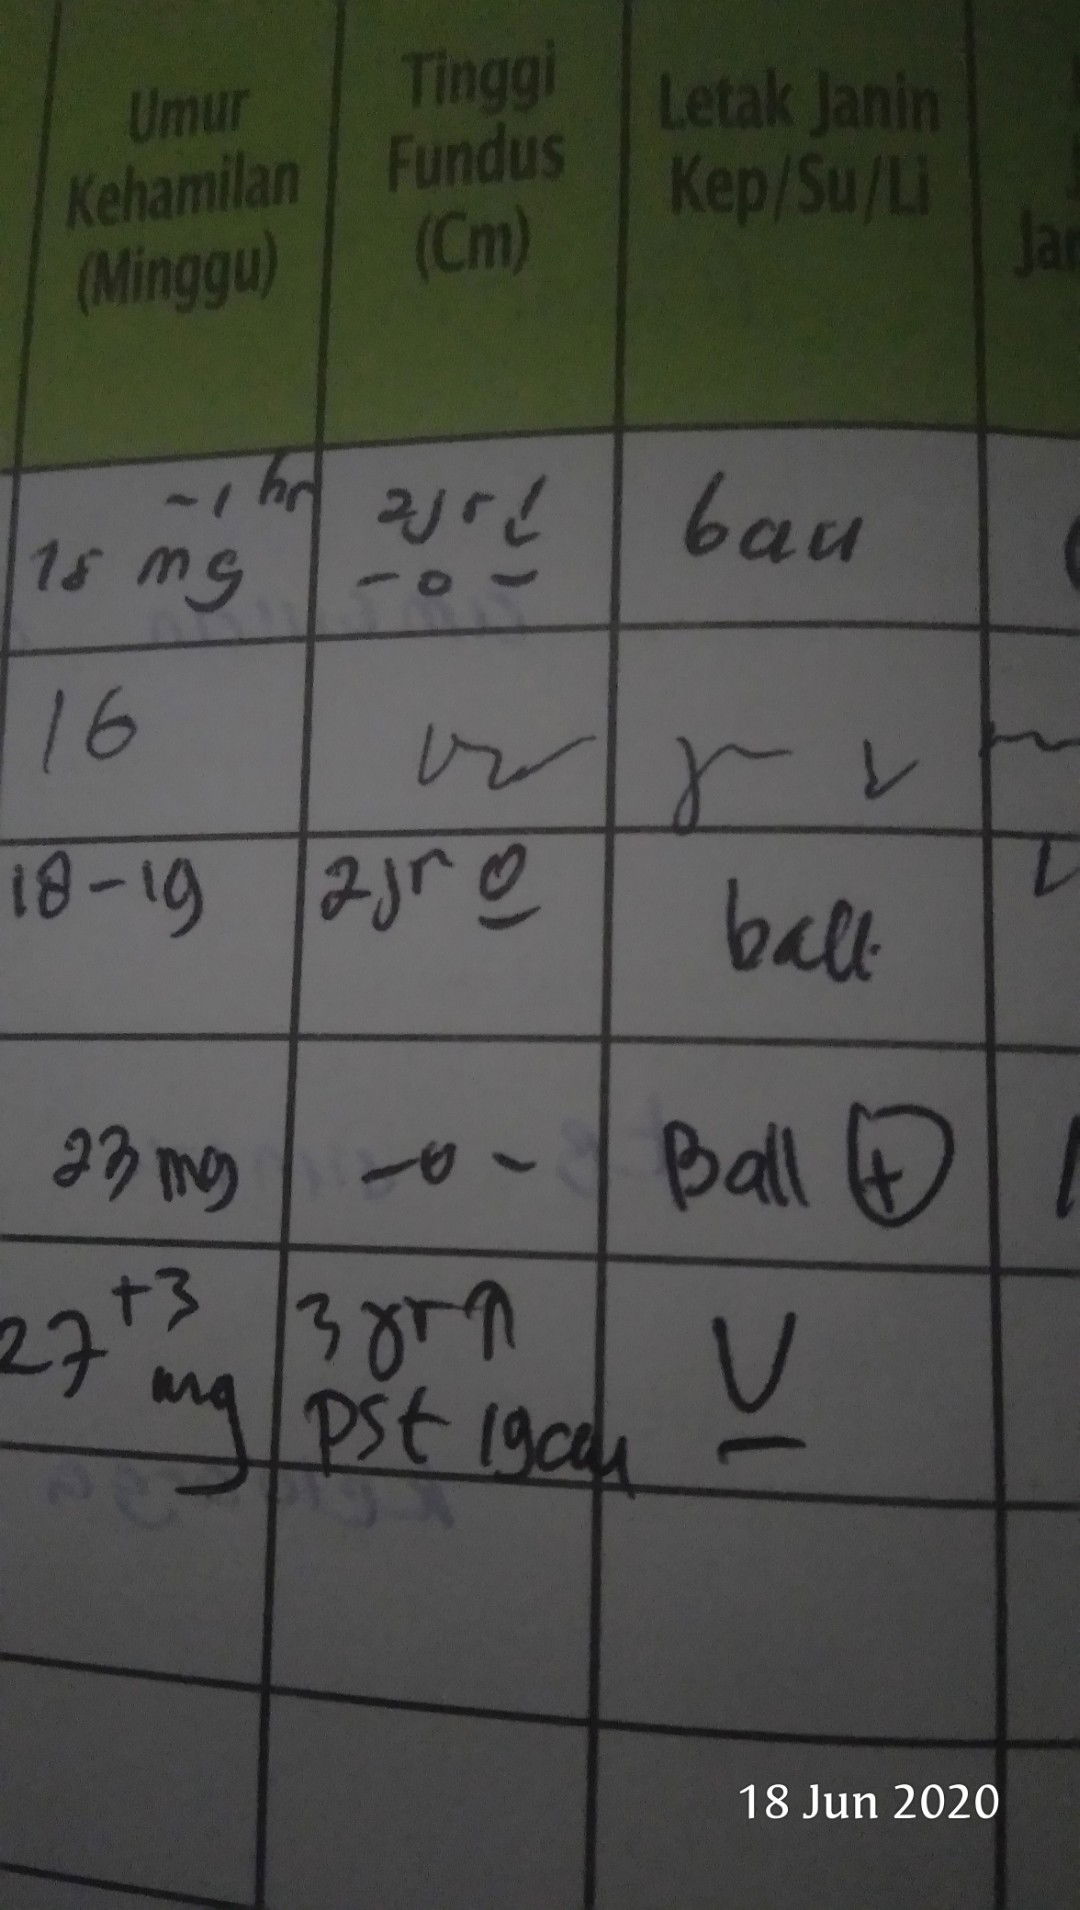 Umur
Kehamilan
(Minggu)
Tinggi
Fundus
(Cm)
Letak Janin
Kep/Su/Li
- 1 hr
15 mg
2jr
- 0 -
ball
16
18-19
2jr
ball
23 mg
- 0 -
Ball +
27 +3
mg
3 jr ↑
pst 19 cm
U
18 Jun 2020